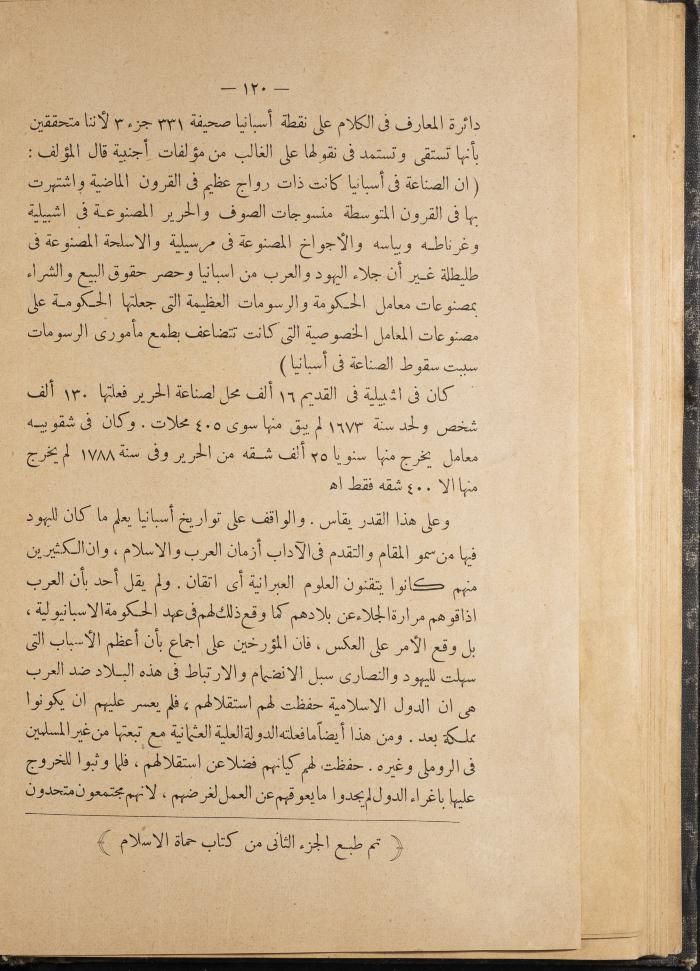 — ١٢٠ —
دائرة المعارف فى الكلام على نقطة أسبانيا صحيفة ٣٣١ جزء ٣ لأننا متحققين
بأنها تستقى وتستمد فى نقولها على الغالب من مؤلفات أجنبية قال المؤلف :
( ان الصناعة فى أسبانيا كانت ذات رواج عظيم فى القرون الماضية واشتهرت
بها فى القرون المتوسطة منسوجات الصوف والحرير المصنوعة فى اشبيلية
وغرناطه وبياسه والأجواخ المصنوعة فى مرسيلية والاسلحة المصنوعة فى
طليطلة غير أن جلاء اليهود والعرب من اسبانيا وحصر حقوق البيع والشراء
بمصنوعات معامل الحكومة والرسومات العظيمة التى جعلتها الحكومة على
مصنوعات المعامل الخصوصية التى كانت تتضاعف بطمع مأمورى الرسومات
سببت سقوط الصناعة فى أسبانيا )
كان فى اشبيلية فى القديم ١٦ ألف محل لصناعة الحرير فعلتها ١٣٠ ألف
شخص ولحد سنة ١٦٧٣ لم يبق منها سوى ٤٠٥ محلات . وكان فى شقوبيه
معامل يخرج منها سنويا ٢٥ ألف شقه من الحرير وفى سنة ١٧٨٨ لم يخرج
منها الا ٤٠٠ شقه فقط اه
وعلى هذا القدر يقاس . والواقف على تواريخ أسبانيا يعلم ما كان لليهود
فيها من سمو المقام والتقدم فى الآداب أزمان العرب والاسلام ، وان الكثيرين
منهم كانوا يتقنون العلوم العبرانية أى اتقان . ولم يقل أحد بأن العرب
اذاقوهم مرارة الجلاء عن بلادهم كما وقع ذلك لهم فى عهد الحكومة الاسبانيولية ،
بل وقع الأمر على العكس ، فان المؤرخين على اجماع بأن أعظم الأسباب التى
سهلت لليهود والنصارى سبل الانضمام والارتباط فى هذه البلاد ضد العرب
هى ان الدول الاسلامية حفظت لهم استقلالهم ، فلم يعسر عليهم ان يكونوا
مملكة بعد . ومن هذا أيضاً ما فعلته الدولة العلية العثمانية مع تبعتها من غير المسلمين
فى الروملى وغيره . حفظت لهم كيانهم فضلا عن استقلالهم ، فلما وثبوا للخروج
عليها باغراء الدول لم يجدوا ما يعوقهم عن العمل لغرضهم ، لانهم مجتمعون متحدون
( تم طبع الجزء الثانى من كتاب حماة الاسلام )